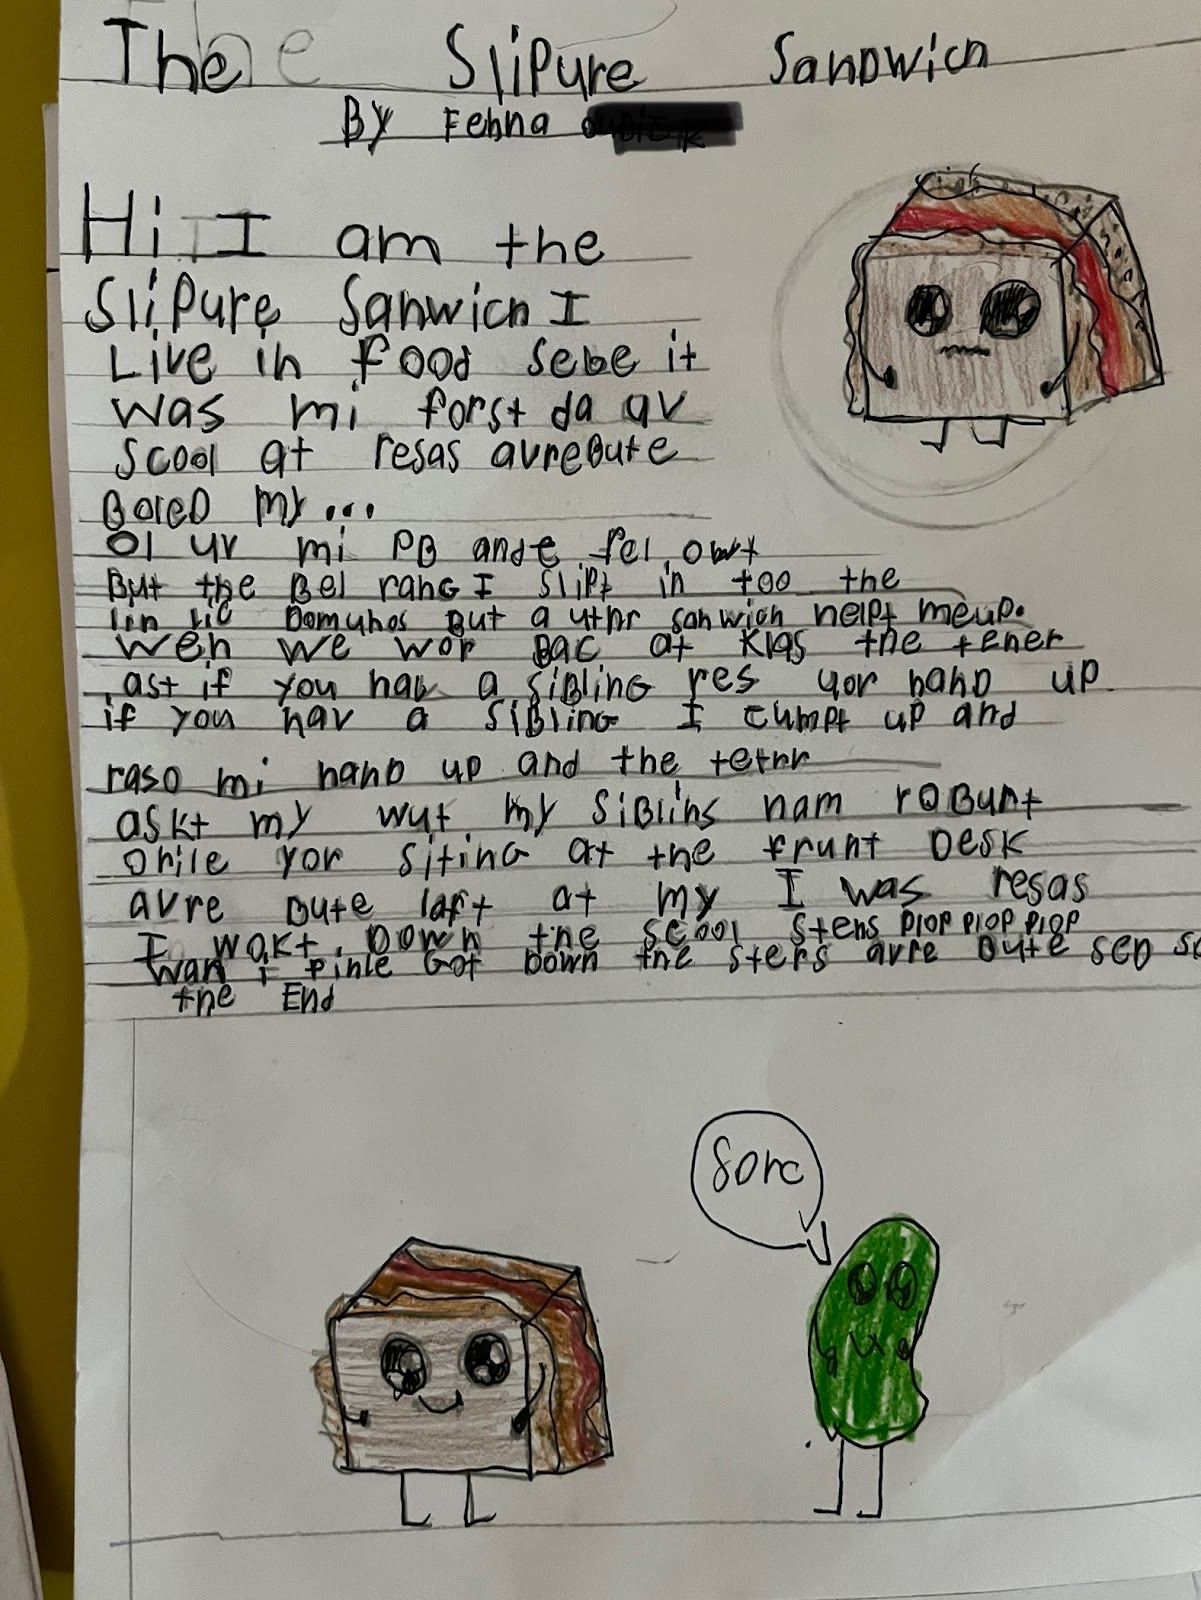 The Slipure Sandwich
By Fehna
Hi I am the
Slipure Sanwich I
Live in food sebe it
was mi forst da av
scool at resas avrebute
Boled my...
Ol uv mi PB ande fel owt
But the Bel rang I slipt in too the
lin Domunos But a uthr sanwich helpt me up.
weh we wor Bac at Klas the teher
ast if you hav a sibling res yor hand up
if you hav a sibling I tumpt up and
raso mi hand up and the tethr
askt my wut my siblins nam robunt
ohile yor siting at the frunt Desk
avre bute laft at my I was resas
I wokt Down the scool sters plop plop plop
wan i finle Got Down the sters avre bute sed so
the End
Sore